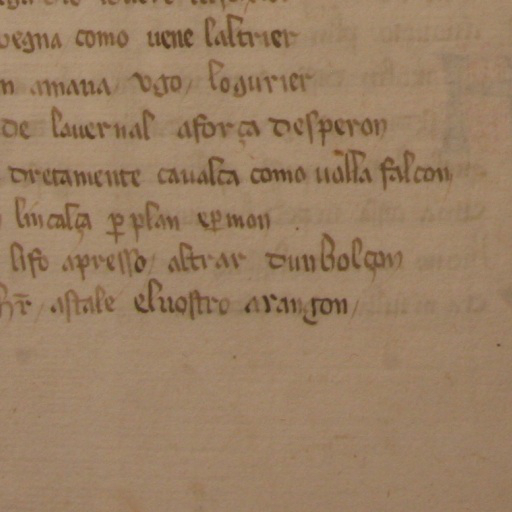 vegna como uene laltrier
n amaua vgo logurier
de lauernal aforça desperon
dretamente caualca como uolla falcon
lincalça p plan epmon
lifo apresso / altrar dunbolçon
/ astale eluostro arangon /